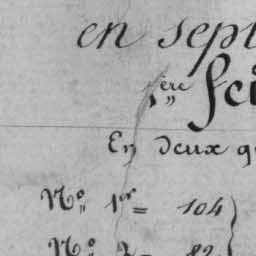 en sept
1ère Sci
En deux q
N° 1er = 104
N° 2 = 82